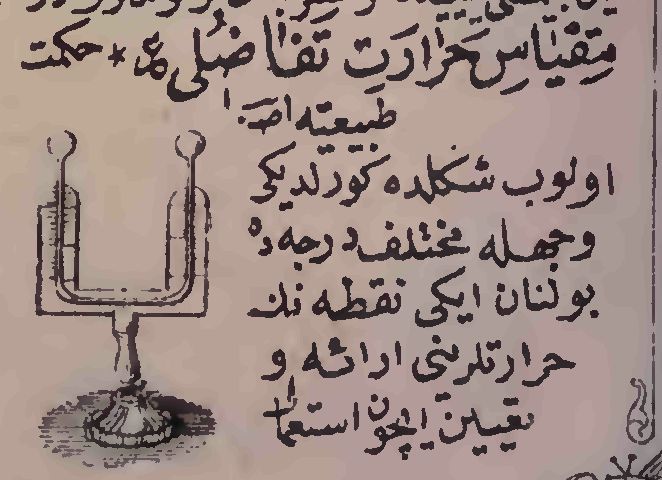 مِقْيَاسِ حَرَارَتِ تَفَاضُلِى * حكمت
طبيعيه اصـ.
اولوب شكلده كورلديكى
وجهله مختلف درجه ده
بولنان ايكى نقطه نك
حرارتلرينى ارائه و
تعيين ايچون استعمال